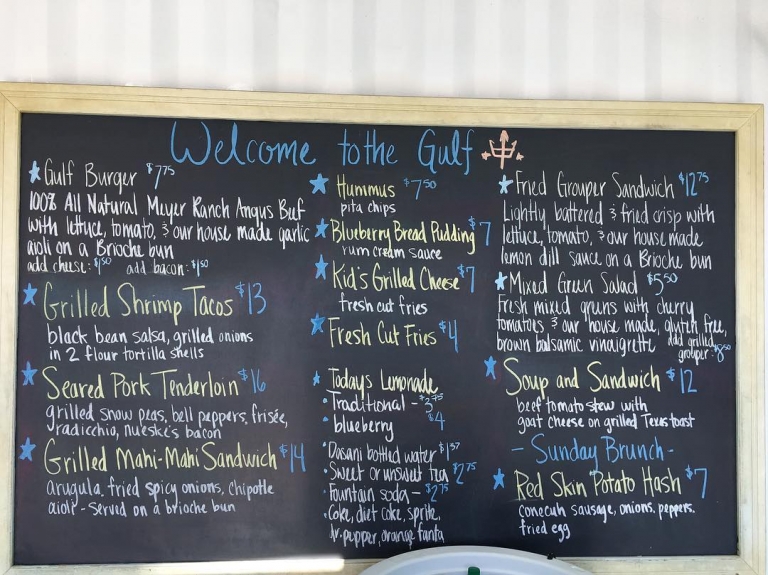 Welcome to the Gulf
Gulf Burger $7.75
100% All Natural Meyer Ranch Angus Beef
with lettuce, tomato, & our house made garlic
aioli on a Brioche bun
add cheese: $1.50 add bacon: $1.50
Grilled Shrimp Tacos $13
black bean salsa, grilled onions
in 2 flour tortilla shells
Seared Pork Tenderloin $16
grilled snow peas, bell peppers, frisée,
radicchio, nueske's bacon
Grilled Mahi-Mahi Sandwich $14
arugula, fried spicy onions, chipotle
aioli - served on a brioche bun
Hummus $7.50
pita chips
Blueberry Bread Pudding $7
rum cream sauce
Kid's Grilled Cheese $7
fresh cut fries
Fresh Cut Fries $4
Todays Lemonade
Traditional - $3.75
blueberry $4
Dasani bottled water $1.57
Sweet or unsweet tea $2.75
Fountain soda - $2.75
Coke, diet coke, sprite,
dr. pepper, orange fanta
Fried Grouper Sandwich $12.75
Lightly battered & fried crisp with
lettuce, tomato, & our house made
lemon dill sauce on a Brioche bun
Mixed Green Salad $5.50
Fresh mixed greens with cherry
tomatoes & our house made, gluten free,
brown balsamic vinaigrette add grilled
grouper: $8.50
Soup and Sandwich $12
beef tomato stew with
goat cheese on grilled Texas toast
- Sunday Brunch -
Red Skin Potato Hash $7
conecuh sausage, onions, peppers,
fried egg